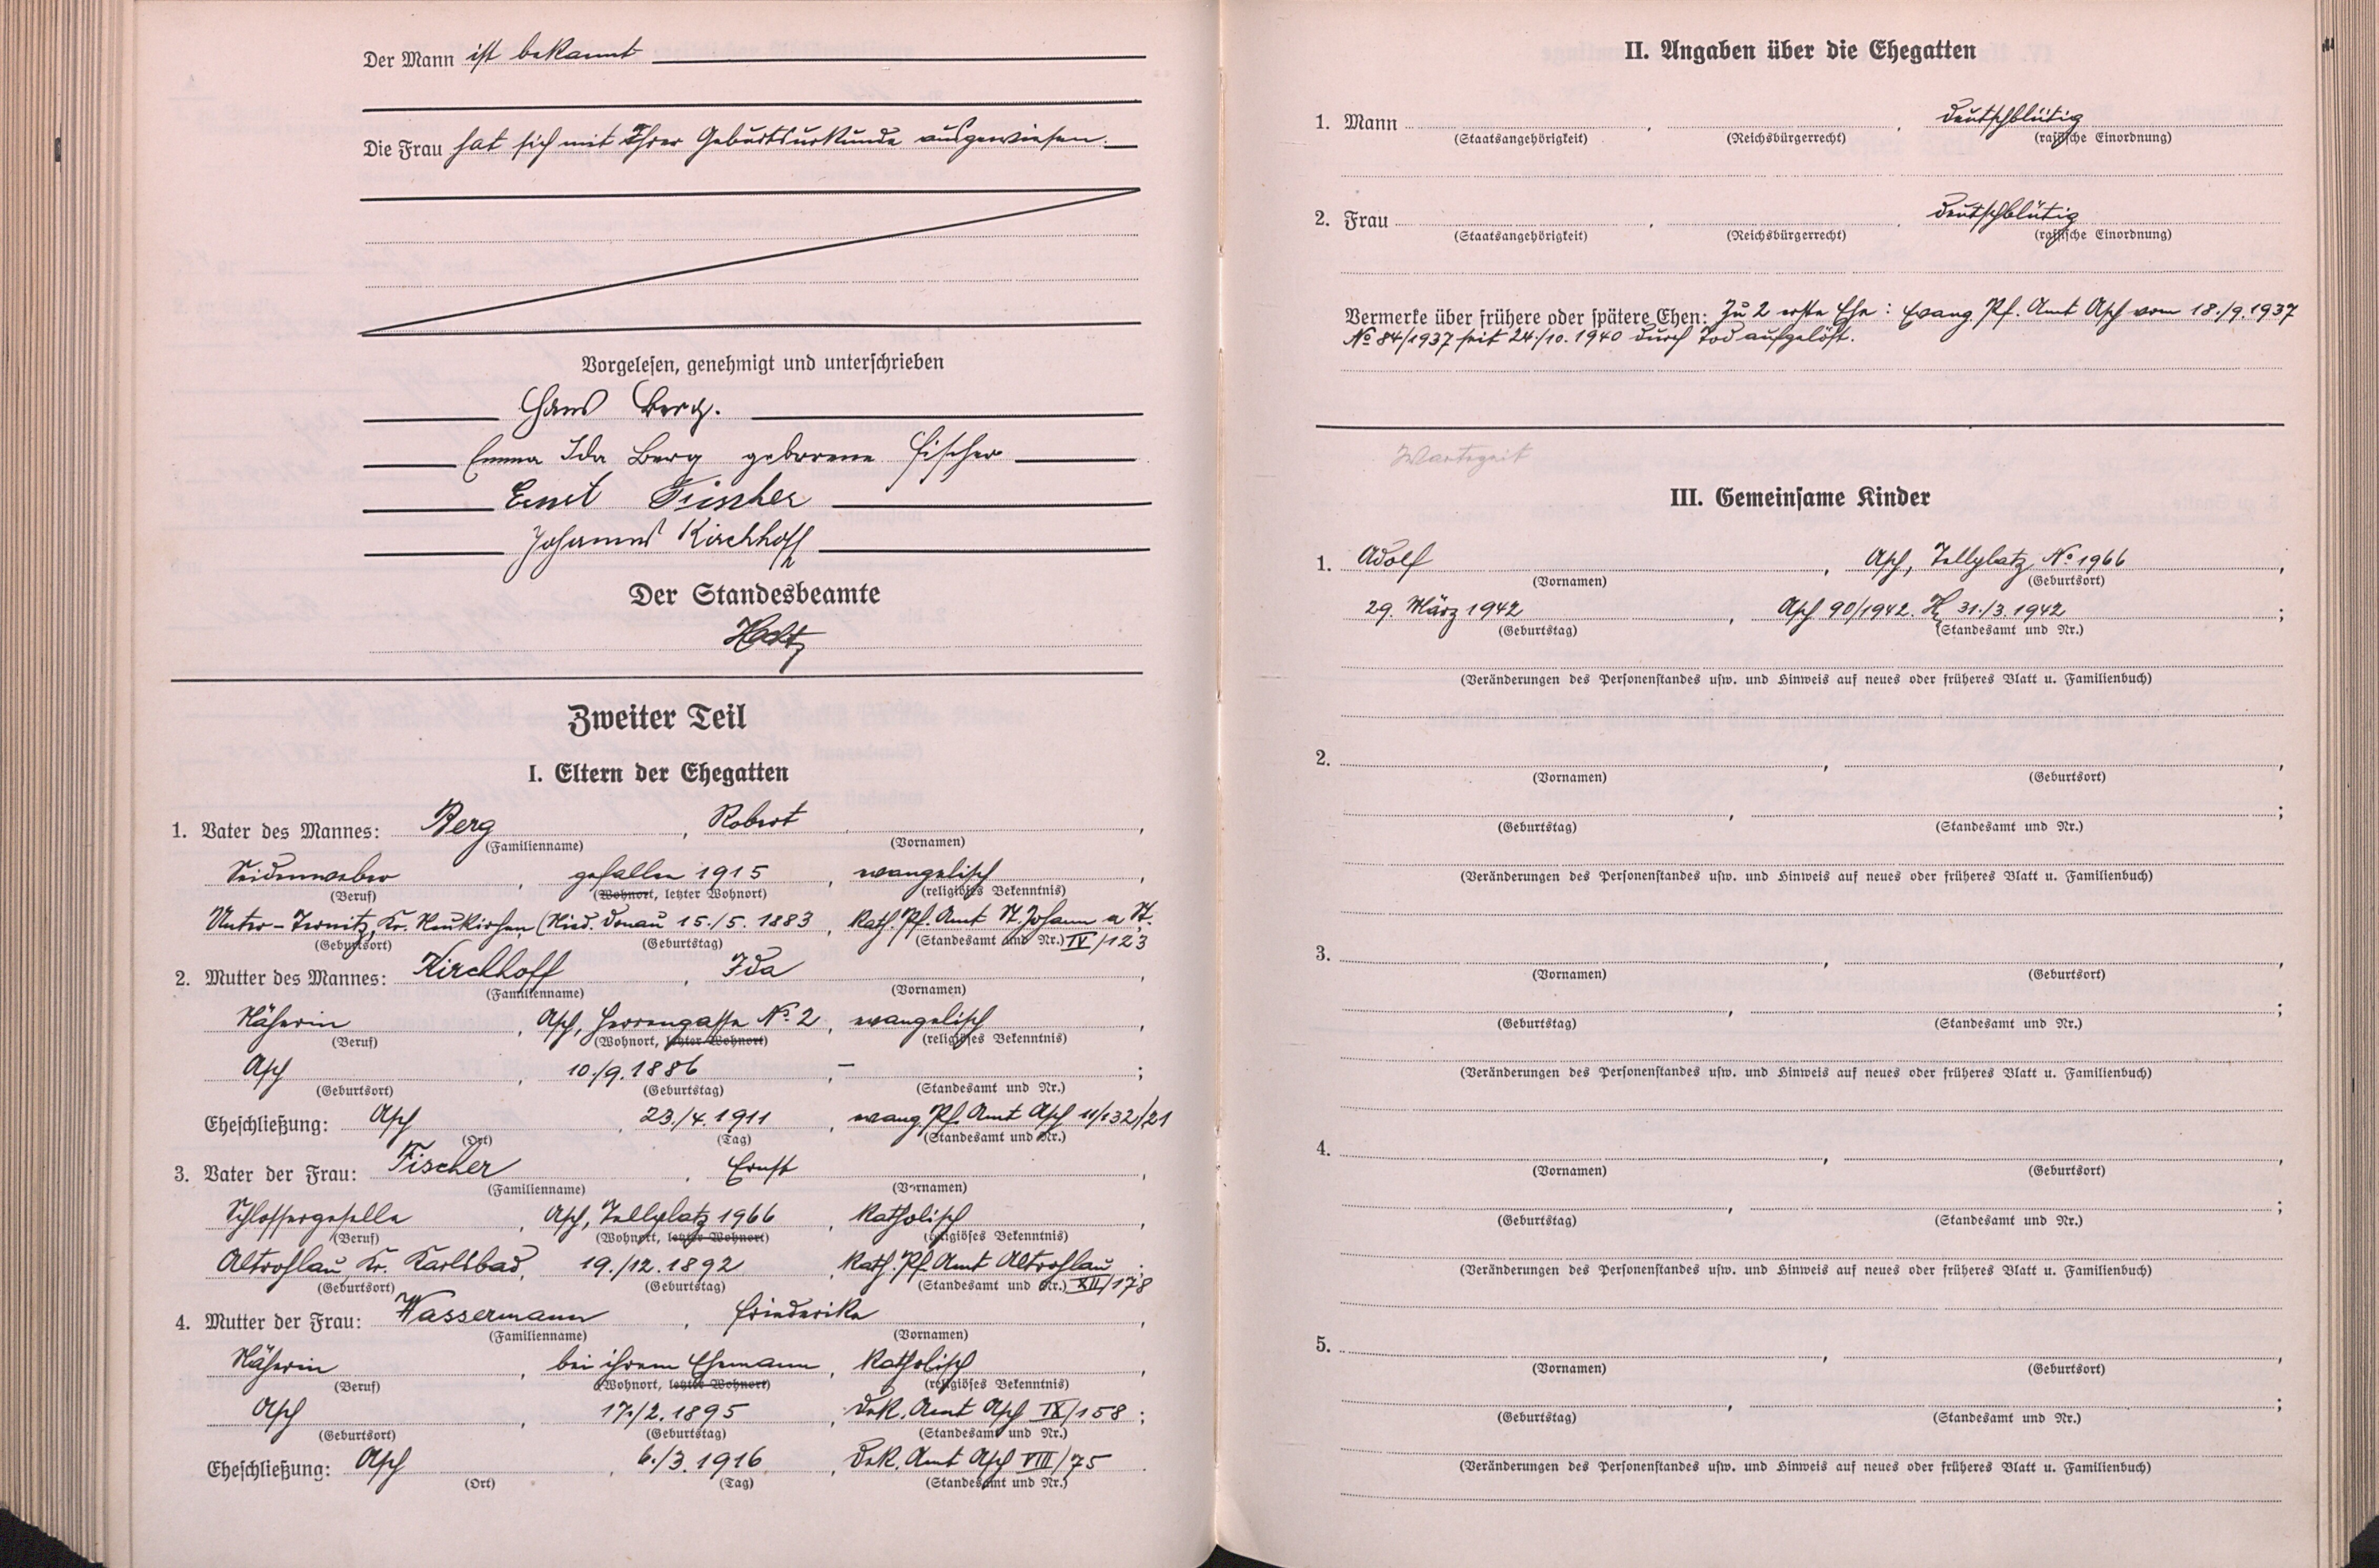 Der Mann ist bekannt
Die Frau hat sich mit Ihrer Geburtsurkunde ausgewiesen.
Vorgelesen, genehmigt und unterschrieben
Hans Berg.
Emma Ida Berg geborene Fischer
Ernst Fischer
Johannes Kirchhoff
Der Standesbeamte
Zweiter Teil
I. Eltern der Ehegatten
1. Vater des Mannes: Berg, Robert,
(Familienname) (Vornamen)
Seidenweber, gefallen 1915, evangelisch,
(Beruf) (Wohnort, letzter Wohnort) (religiöses Bekenntnis)
Unter-Ternitz, Kr. Neukirchen (Nied. Donau 15./5. 1883, Kath. Pf. Amt St. Johann a St.
(Geburtsort) (Geburtstag) (Standesamt und Nr.) IV/123
2. Mutter des Mannes: Kirchhoff, Ida,
(Familienname) (Vornamen)
Näherin, Asch, Herrengasse No. 2, evangelisch,
(Beruf) (Wohnort, letzter Wohnort) (religiöses Bekenntnis)
Asch, 10./9. 1886, – ;
(Geburtsort) (Geburtstag) (Standesamt und Nr.)
Eheschließung: Asch, 23./4. 1911, evang. Pf. Amt Asch 11/132/21
(Ort) (Tag) (Standesamt und Nr.)
3. Vater der Frau: Fischer, Ernst,
(Familienname) (Vornamen)
Schlossergeselle, Asch, Tellplatz 1966, katholisch,
(Beruf) (Wohnort, letzter Wohnort) (religiöses Bekenntnis)
Altrohlau, Kr. Karlsbad, 19./12. 1892, Kath. Pf. Amt Altrohlau;
(Geburtsort) (Geburtstag) (Standesamt und Nr.) XII/178
4. Mutter der Frau: Wassermann, Friederike,
(Familienname) (Vornamen)
Näherin, bei ihrem Ehemann, katholisch,
(Beruf) (Wohnort, letzter Wohnort) (religiöses Bekenntnis)
Asch, 17./2. 1895, Dek. Amt Asch IX/158;
(Geburtsort) (Geburtstag) (Standesamt und Nr.)
Eheschließung: Asch, 6./3. 1916, Dek. Amt Asch VIII/75.
(Ort) (Tag) (Standesamt und Nr.)
II. Angaben über die Ehegatten
1. Mann , , deutschblütig
(Staatsangehörigkeit) (Reichsbürgerrecht) (rassische Einordnung)
2. Frau , , deutschblütig
(Staatsangehörigkeit) (Reichsbürgerrecht) (rassische Einordnung)
Vermerke über frühere oder spätere Ehen: Zu 2 erste Ehe: Evang. Pf. Amt Asch vom 18./9. 1937
No 84/1937 seit 24./10. 1940 durch Tod aufgelöst.
Wartezeit
III. Gemeinsame Kinder
1. Adolf, Asch, Tellplatz No 1966,
(Vornamen) (Geburtsort)
29. März 1942, Asch 90/1942. 31./3. 1942;
(Geburtstag) (Standesamt und Nr.)
(Veränderungen des Personenstandes usw. und Hinweis auf neues oder früheres Blatt u. Familienbuch)
2. , ,
(Vornamen) (Geburtsort)
, ;
(Geburtstag) (Standesamt und Nr.)
(Veränderungen des Personenstandes usw. und Hinweis auf neues oder früheres Blatt u. Familienbuch)
3. , ,
(Vornamen) (Geburtsort)
, ;
(Geburtstag) (Standesamt und Nr.)
(Veränderungen des Personenstandes usw. und Hinweis auf neues oder früheres Blatt u. Familienbuch)
4. , ,
(Vornamen) (Geburtsort)
, ;
(Geburtstag) (Standesamt und Nr.)
(Veränderungen des Personenstandes usw. und Hinweis auf neues oder früheres Blatt u. Familienbuch)
5. , ,
(Vornamen) (Geburtsort)
, ;
(Geburtstag) (Standesamt und Nr.)
(Veränderungen des Personenstandes usw. und Hinweis auf neues oder früheres Blatt u. Familienbuch)